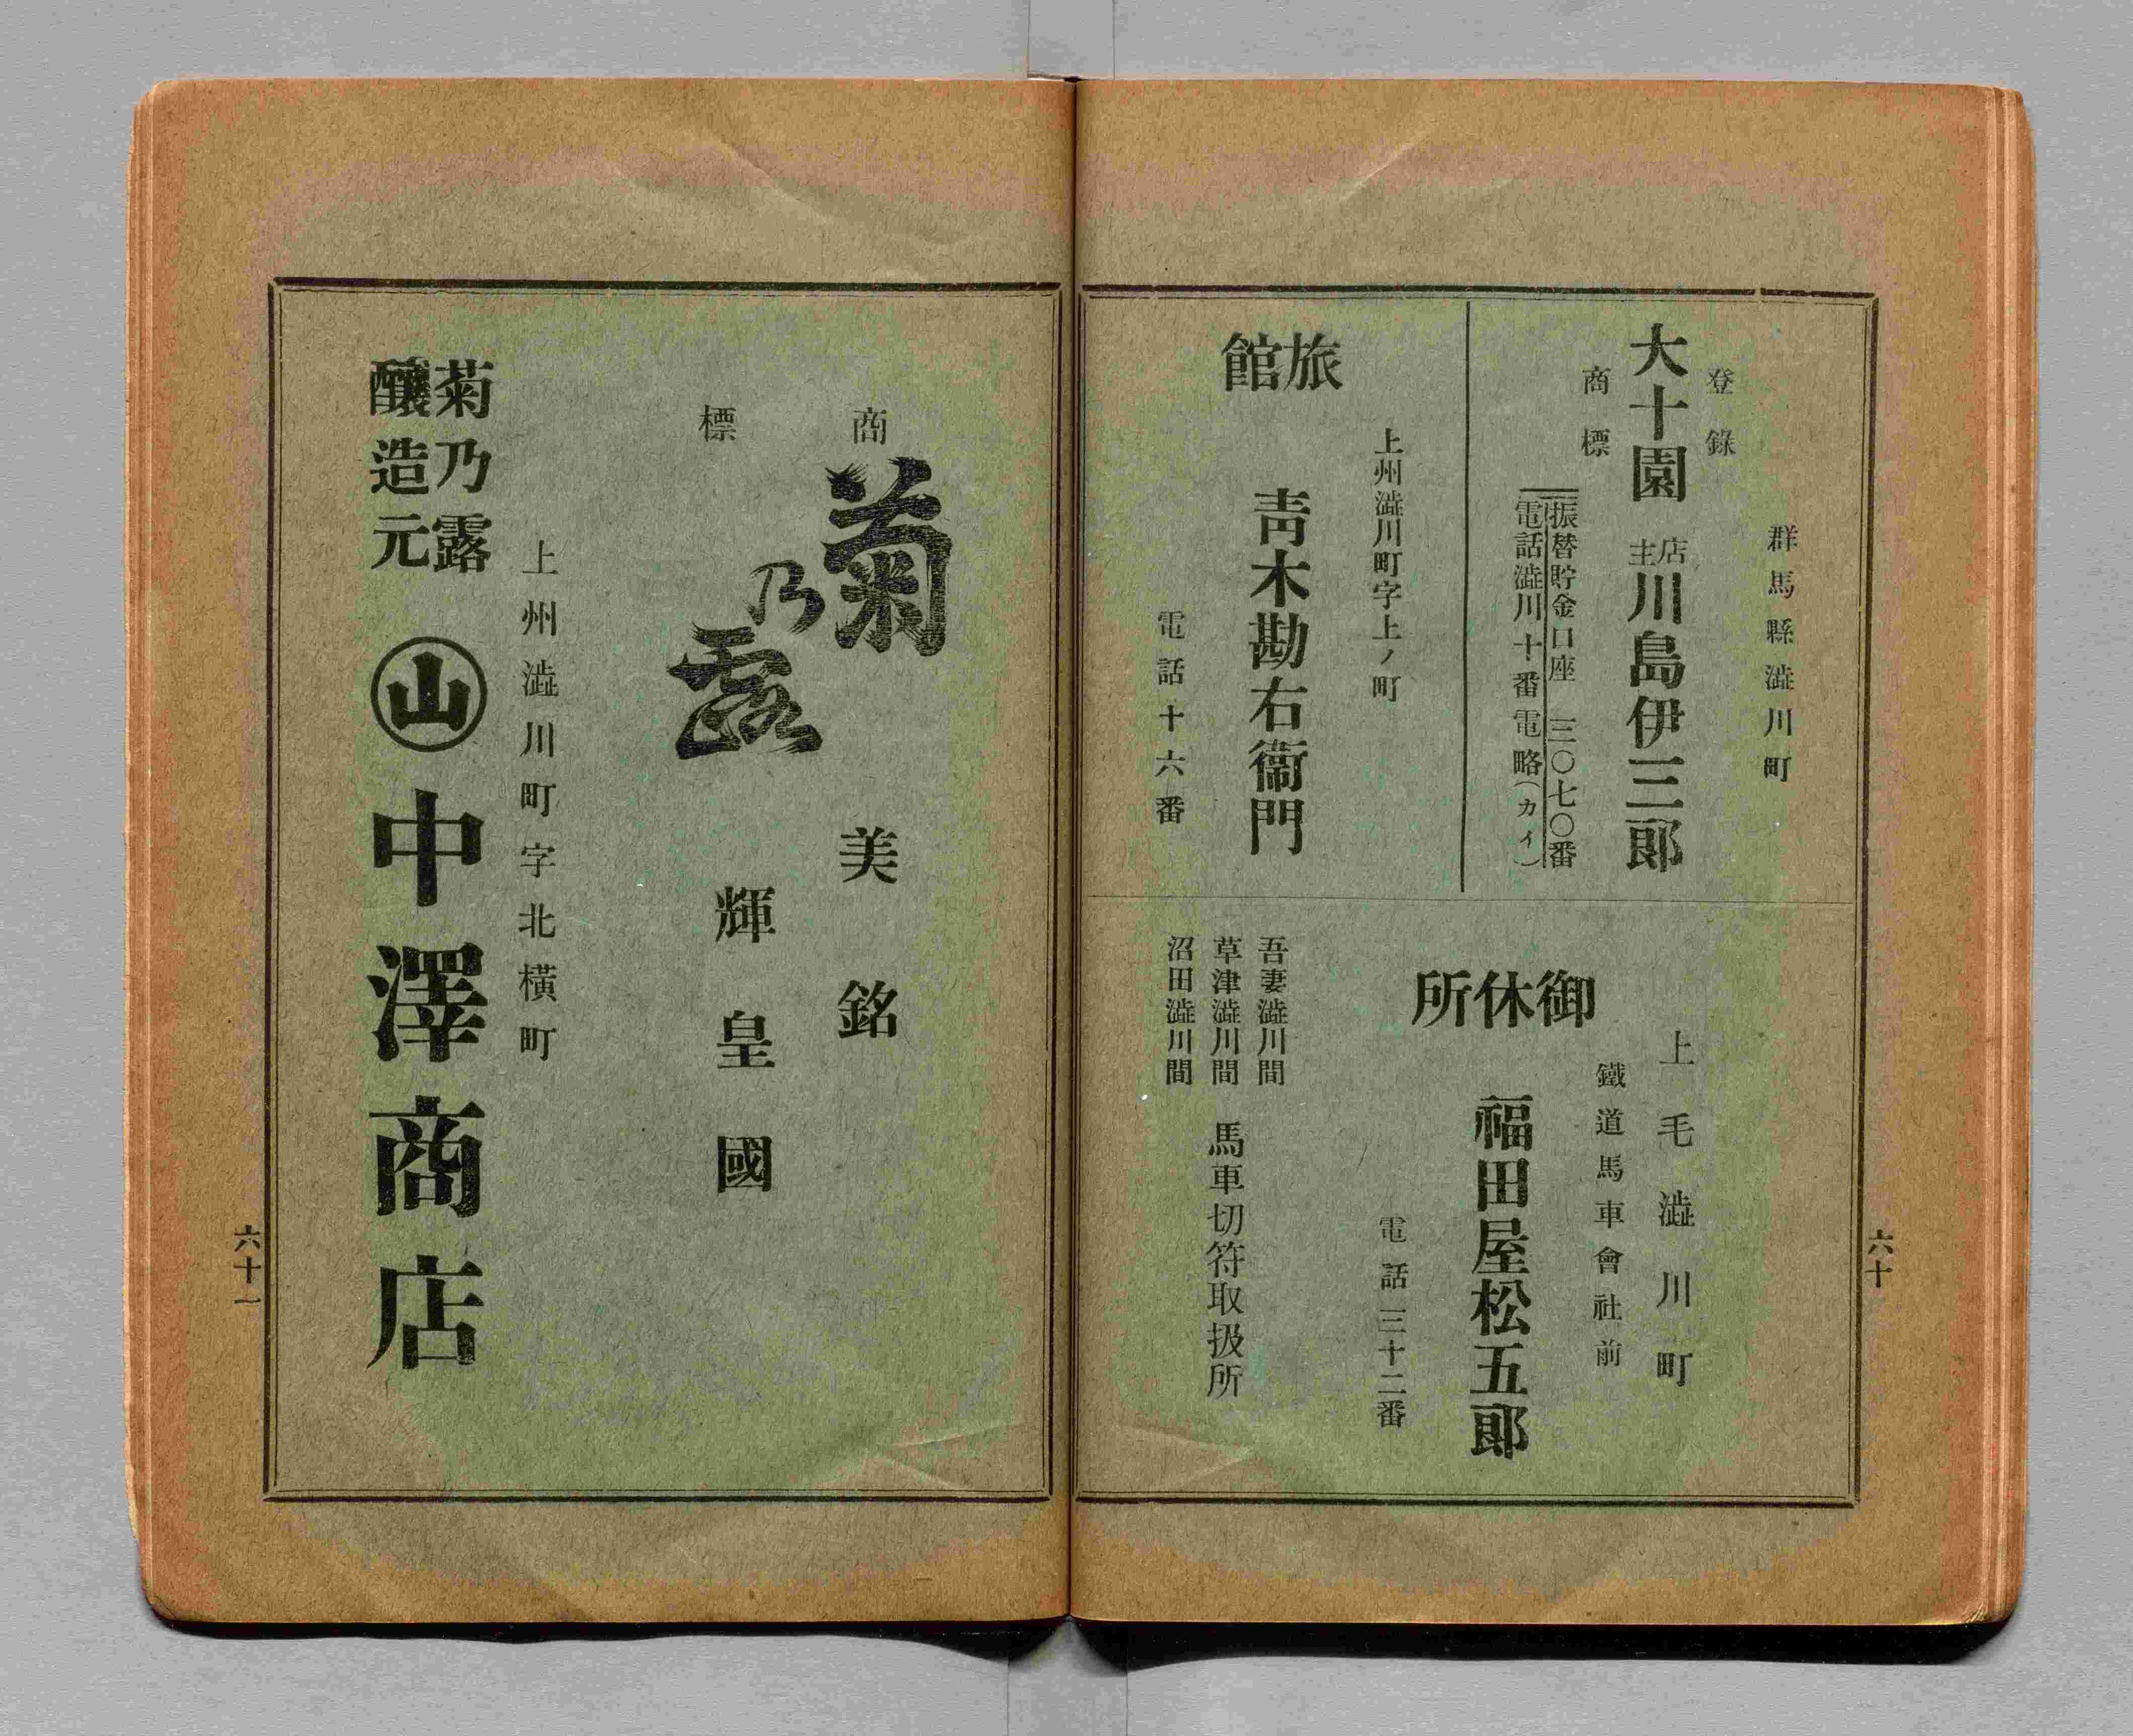 群馬縣澁川町
登錄
大十園
商標
店主
川島伊三郎
振替貯金口座 三〇七〇番
電話澁川十番電略(カイ)
上州澁川町字上ノ町
旅館
靑木勘右衞門
電話十六番
上毛澁川町
鐵道馬車會社前
御休所
福田屋松五郎
電話三十二番
吾妻澁川間
草津澁川間
沼田澁川間
馬車切符取扱所
六十
商標
菊乃露
美銘
輝皇國
上州澁川町字北橫町
菊乃露
釀造元
山
中澤商店
六十一